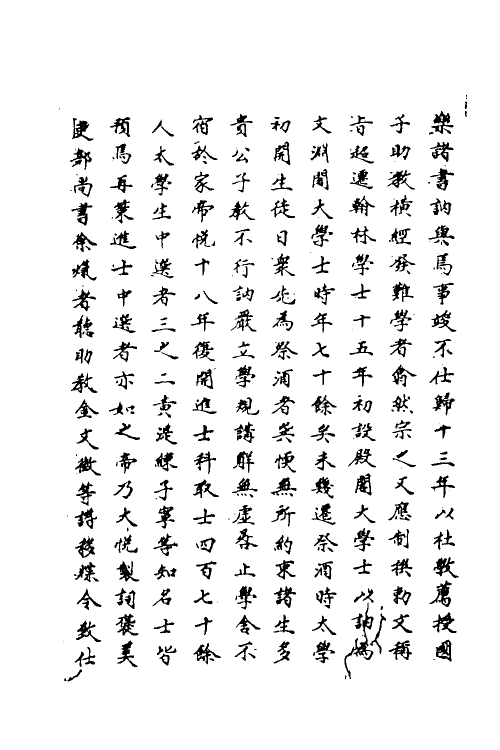 樂諸書訥與焉事竣不仕歸十三年以杜斆薦授國
子助教橫經發難學者翕然宗之又應制撰勅文稱
旨超遷翰林學士十五年初設殿閣大學士以訥爲
文淵閣大學士時年七十餘矣未幾遷祭酒時太學
初開生徒日衆先為祭酒者㢲懦無所約束諸生多
貴公子教不行訥嚴立學規講解無虛晷止學舍不
宿於家帝悅十八年復開進士科取士四百七十餘
人太學生中選者三之二黃湜練子寧等知名士皆
預焉再策進士中選者亦如之帝乃大悅製詞褒美
吏部尚書余熂者聽助教金文徵等譖移牒令致仕